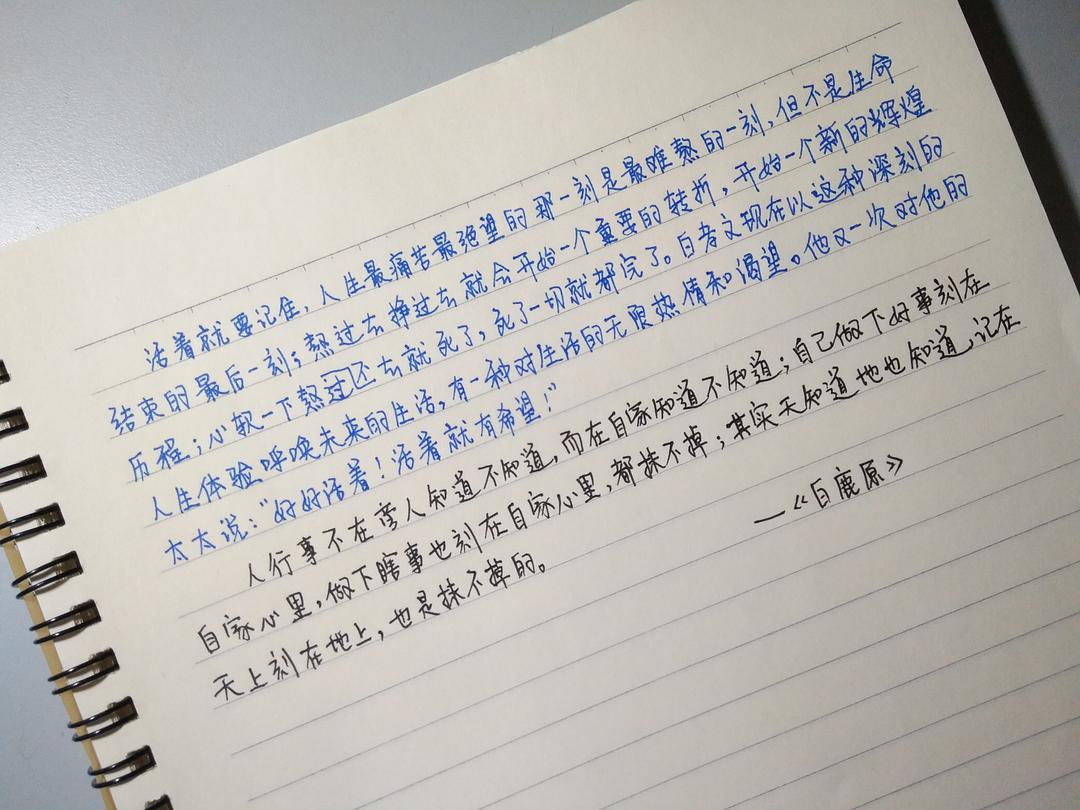 活着就要记住，人生最痛苦最绝望的那一刻是最难熬的一刻，但不是生命
结束的最后一刻；熬过去挣过去就会开始一个重要的转折，开始一个新的辉煌
历程；心软一下熬过不去就死了，死了一切就都完了。白孝文现在以这种深刻的
人生体验呼唤未来的生活，有一种对生活的无限热情和渴望。他又一次对他的
太太说：“好好活着！活着就有希望！”
人行事不在旁人知道不知道，而在自家知道不知道；自己做下好事刻在
自家心里，做下瞎事也刻在自家心里，都抹不掉；其实天知道地也知道，记在
天上刻在地上，也是抹不掉的。
—《白鹿原》